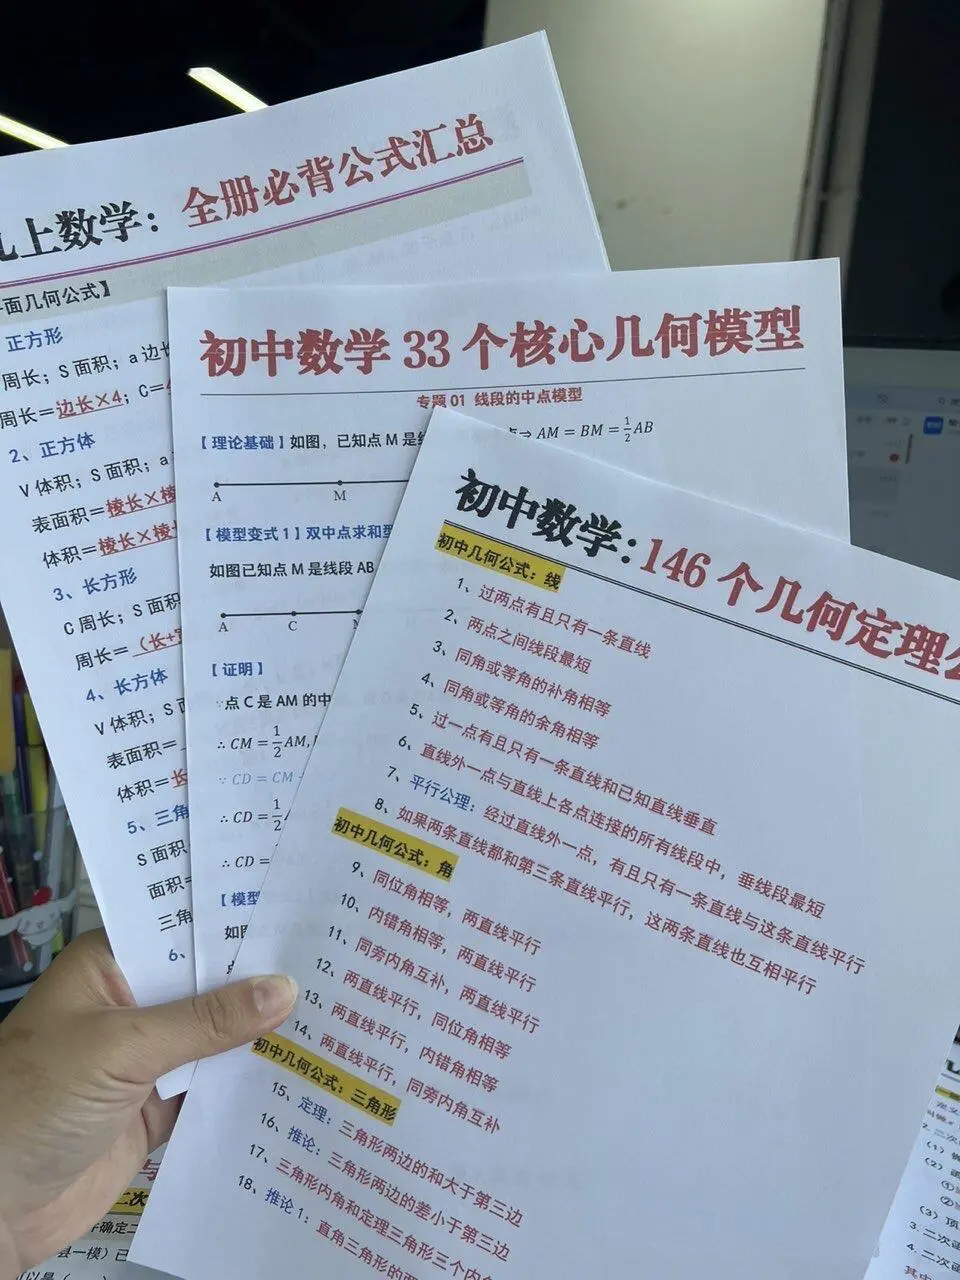 上数学：全册必背公式汇总
面几何公式】
正方形
周长；S 面积；a 边长
周长＝边长×4；C＝
2、正方体
V 体积；S 面积；a
表面积＝棱长×棱
体积＝棱长×棱
3、长方形
C 周长；S 面积
周长＝（长+
4、长方体
V 体积；S
表面积＝
体积＝长
5、三角
S 面积
面积＝
三角
6、
初中数学 33 个核心几何模型
专题 01 线段的中点模型
【理论基础】如图，已知点 M 是
⇒ AM = BM = 1/2 AB
A M
【模型变式 1】双中点求和型
如图已知点 M 是线段 AB
A C
【证明】
∵点 C 是 AM 的中
∴ CM = 1/2 AM,
∵ CD = CM
∴ CD = 1/2
∴ CD =
【模型
如图
初中数学：146 个几何定理
初中几何公式：线
1、过两点有且只有一条直线
2、两点之间线段最短
3、同角或等角的补角相等
4、同角或等角的余角相等
5、过一点有且只有一条直线和已知直线垂直
6、直线外一点与直线上各点连接的所有线段中，垂线段最短
7、平行公理：经过直线外一点，有且只有一条直线与这条直线平行
8、如果两条直线都和第三条直线平行，这两条直线也互相平行
初中几何公式：角
9、同位角相等，两直线平行
10、内错角相等，两直线平行
11、同旁内角互补，两直线平行
12、两直线平行，同位角相等
13、两直线平行，内错角相等
14、两直线平行，同旁内角互补
初中几何公式：三角形
15、定理：三角形两边的和大于第三边
16、推论：三角形两边的差小于第三边
17、三角形内角和定理三角形三个内
18、推论 1：直角三角形的
二次
确定二
县一模）已
2. 二次
（1）
（2）
①
②
（3）顶
3. 二次函
4. 二次函